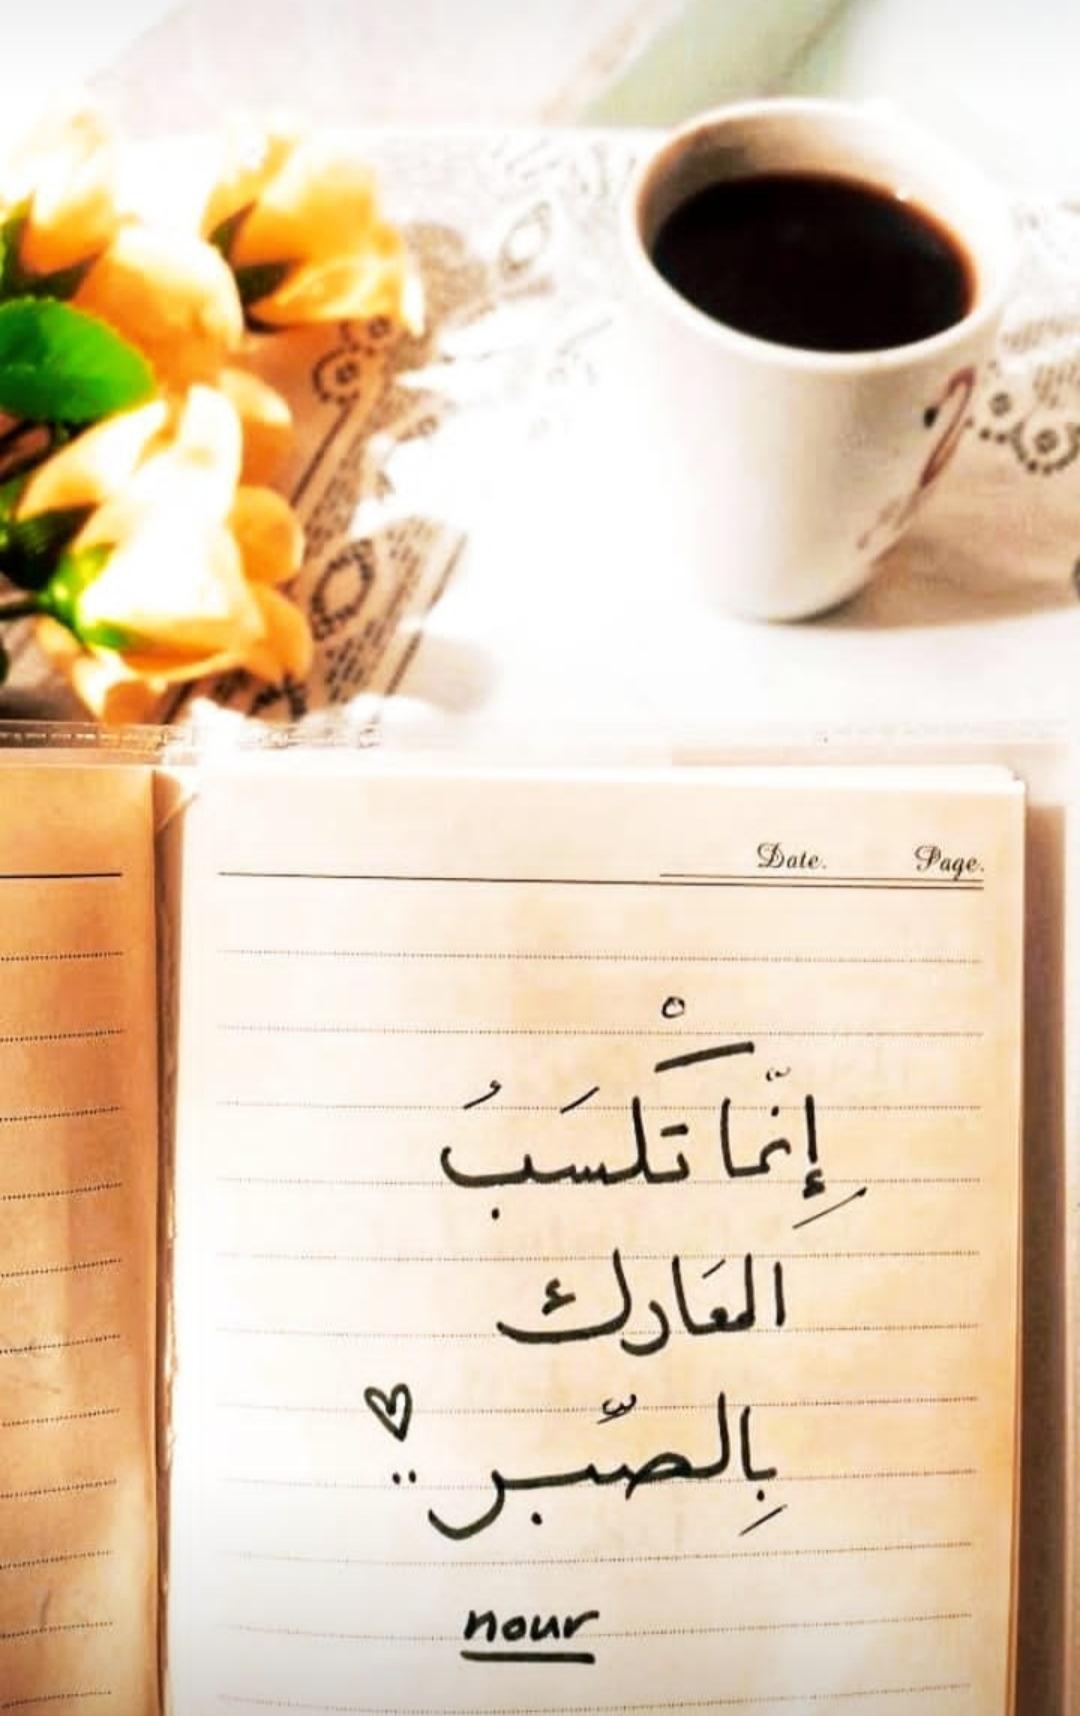 Date. Page.
إِنّما تَكْسَبُ
المعَارك
بِالصّبر ..
nour